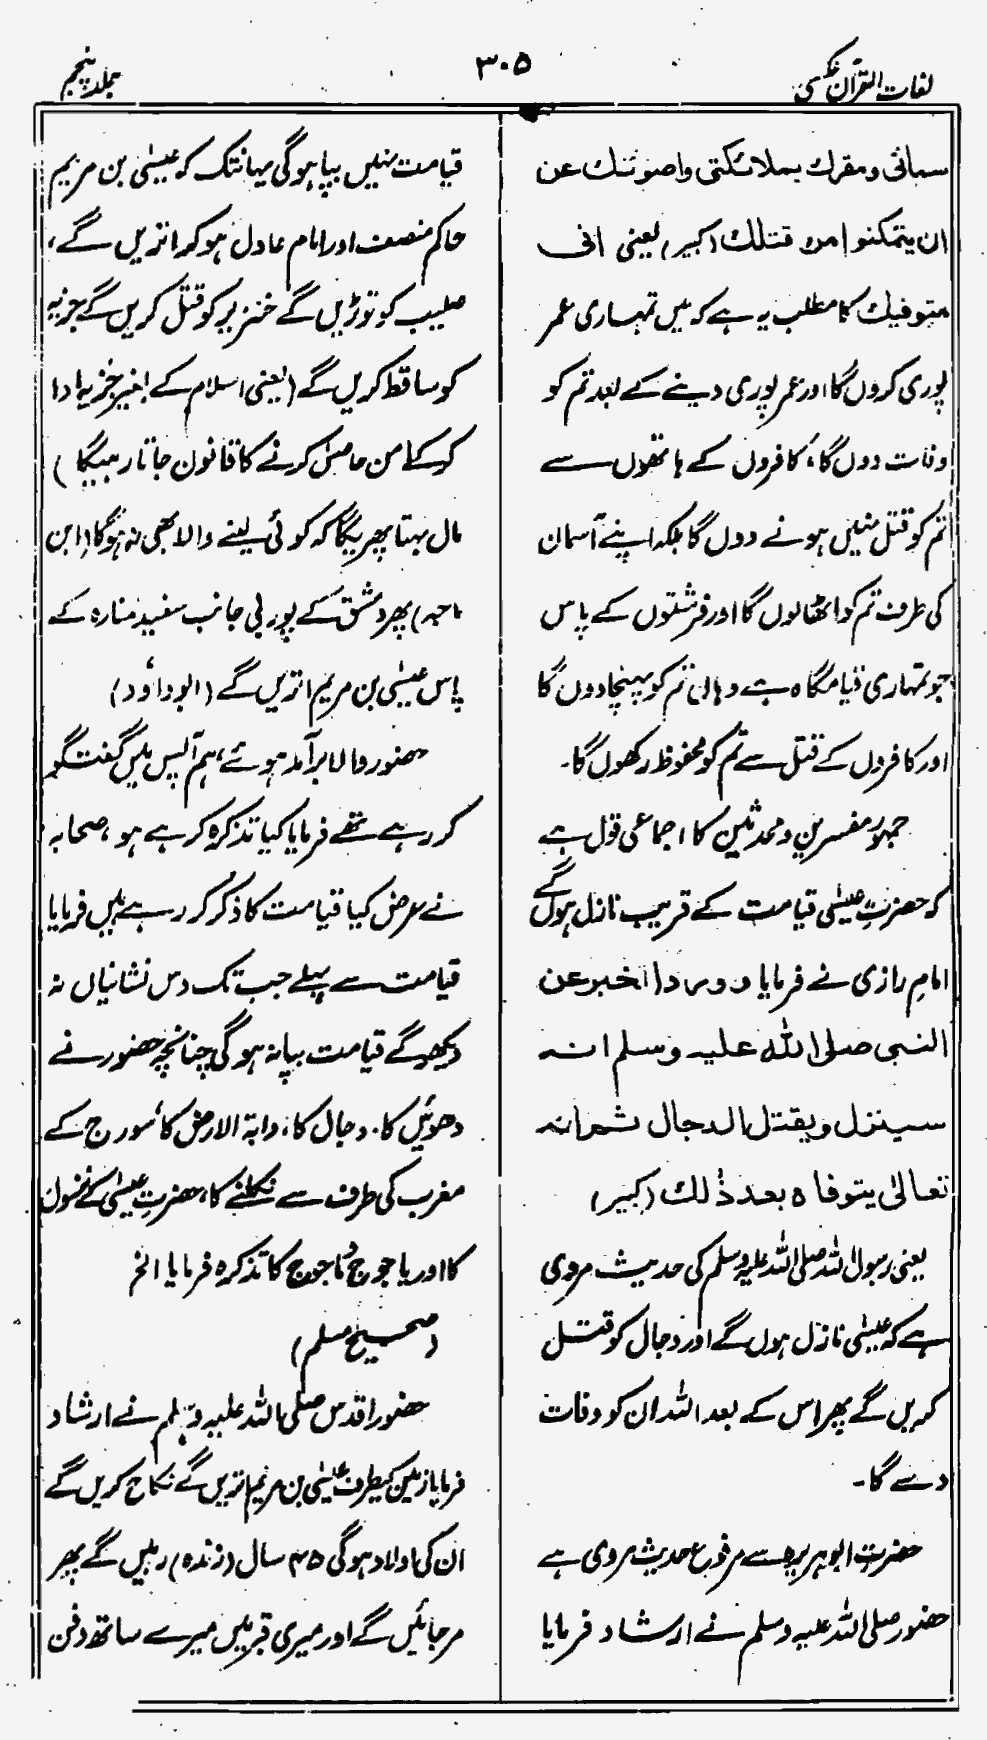 لغات القرآن عکسی
۳۰۵
جلد پنجم
سمائی ومقرك بملائكتی واصونك عن
ان یتمكنوا من قتلك (کبیر) یعنی انی
متوفیك کا مطلب یہ ہے کہ میں تمہاری عمر
پوری کروں گا اور عمر پوری دینے کے بعد تم کو
وفات دوں گا، کافروں کے ہاتھوں سے
تم کو قتل نہیں ہونے دوں گا بلکہ اپنے آسمان
کی طرف تم کو اٹھالوں گا اور فرشتوں کے پاس
جو تمہاری قیامگاہ ہے وہاں تم کو پہنچادوں گا
اور کافروں کے قتل سے تم کو محفوظ رکھوں گا۔
جمہور مفسرین و محدثین کا اجماعی قول ہے
کہ حضرتِ عیسٰی قیامت کے قریب نازل ہوں گے
امامِ رازی نے فرمایا و ورد الخبر عن
النبی صلی الله علیه وسلم انه
سینزل ویقتل الدجال ثم انه
تعالیٰ یتوفاه بعد ذٰلك (کبیر)
یعنی رسول اللہ صلی اللہ علیہ وسلم کی حدیث مروی
ہے کہ عیسٰی نازل ہوں گے اور دجال کو قتل
کریں گے پھر اس کے بعد اللہ ان کو وفات
دے گا۔
حضرتِ ابوہریرہ سے مرفوع حدیث مروی ہے
حضور صلی اللہ علیہ وسلم نے ارشاد فرمایا
قیامت نہیں بپا ہوگی یہانتک کہ عیسٰی بن مریم
حاکم منصف اور امام عادل ہوکر اتریں گے،
صلیب کو توڑیں گے خنزیر کو قتل کریں گے جزیہ
کو ساقط کریں گے (یعنی اسلام کے بغیر جزیہ ادا
کرکے امن حاصل کرنے کا قانون جاتا رہیگا)
مال بہتا پھریگا کہ کوئی لینے والا بھی نہ ہوگا (ابن
ماجہ) پھر دمشق کے پوربی جانب سفید منارہ کے
پاس عیسٰی بن مریم اتریں گے (ابوداؤد)
حضور والا برآمد ہوئے، ہم آپس میں گفتگو
کررہے تھے فرمایا کیا تذکرہ کرہے ہو، صحابہ
نے عرض کیا قیامت کا ذکر کررہے ہیں فرمایا
قیامت سے پہلے جب تک دس نشانیاں نہ
دیکھوگے قیامت بپا نہ ہوگی چنانچہ حضور نے
دھوئیں کا، دجال کا، دابۃ الارض کا، سورج کے
مغرب کی طرف سے نکلنے کا، حضرتِ عیسٰی کے نزول
کا اور یاجوج ماجوج کا تذکرہ فرمایا الخ
(صحیح مسلم)
حضور اقدس صلی اللہ علیہ وسلم نے ارشاد
فرمایا زمین کیطرف عیسٰی بن مریم اتریں گے نکاح کریں گے
ان کی اولاد ہوگی ۴۵ سال (زندہ) رہیں گے پھر
مرجائیں گے اور میری قبر میں میرے ساتھ دفن